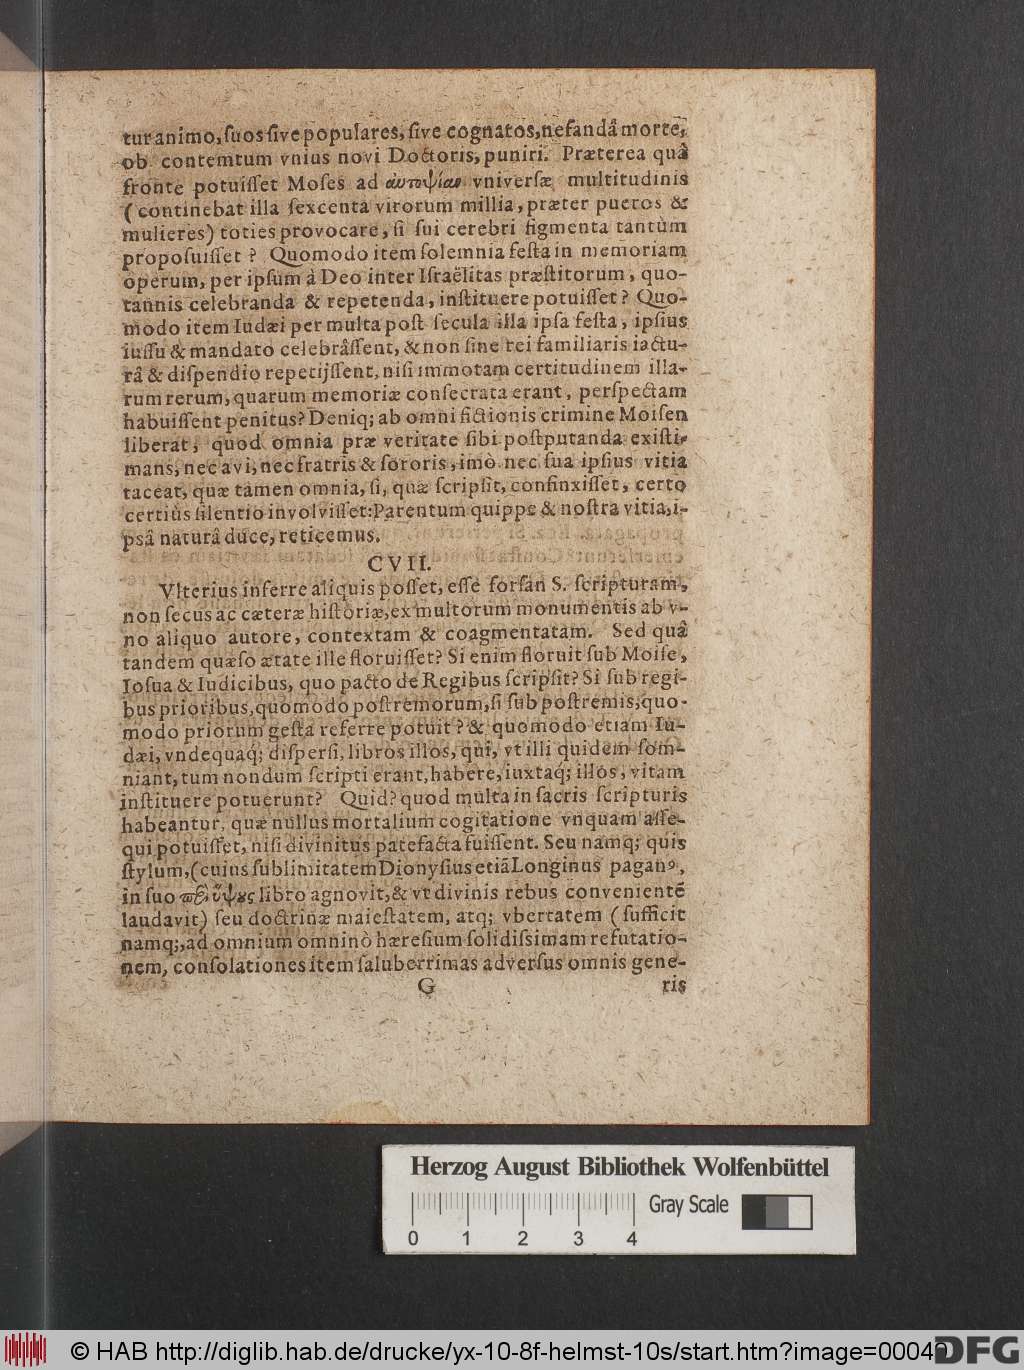 tur animo, ſuos ſive populares, ſive cognatos, nefandâ morte,
ob contemtum vnius novi Doctoris, puniri. Præterea quâ
fronte potuiſſet Moſes ad αὐτοψίαν vniverſæ multitudinis
(continebat illa ſexcenta virorum millia, præter pueros &
mulieres) toties provocare, ſi ſui cerebri figmenta tantùm
propoſuiſſet? Quomodo item ſolemnia feſta in memoriam
operum, per ipſum à Deo inter Iſraëlitas præſtitorum, quo-
tannis celebranda & repetenda, inſtituere potuiſſet? Quo-
modo item Iudæi per multa poſt ſecula illa ipſa feſta, ipſius
iuſſu & mandato celebrâſſent, & non ſine rei familiaris iactu-
râ & diſpendio repetijſſent, niſi immotam certitudinem illa-
rum rerum, quarum memoriæ conſecrata erant, perſpectam
habuiſſent penitus? Deniq; ab omni fictionis crimine Moiſen
liberat, quod omnia præ veritate ſibi poſtputanda exiſti-
mans, nec avi, nec fratris & ſororis, imò nec ſua ipſius vitia
taceat, quæ tamen omnia, ſi, quæ ſcripſit, confinxiſſet, certo
certiùs ſilentio involviſſet: Parentum quippe & noſtra vitia, i-
pſâ naturâ duce, reticemus.
CVII.
Vlterius inferre aliquis poſſet, eſſe forſan S. ſcripturam,
non ſecus ac cæteræ hiſtoriæ, ex multorum monumentis ab v-
no aliquo autore, contextam & coagmentatam. Sed quâ
tandem quæſo ætate ille floruiſſet? Si enim floruit ſub Moiſe,
Ioſua & Iudicibus, quo pacto de Regibus ſcripſit? Si ſub regi-
bus prioribus, quomodo poſtremorum, ſi ſub poſtremis, quo-
modo priorum geſta referre potuit? & quomodo etiam Iu-
dæi, vndequaq́; diſperſi, libros illos, qui, vt illi quidem ſom-
niant, tum nondum ſcripti erant, habere, iuxtaq́; illos, vitam
inſtituere potuerunt? Quid? quod multa in ſacris ſcripturis
habeantur, quæ nullus mortalium cogitatione vnquam aſſe-
qui potuiſſet, niſi divinitus patefacta fuiſſent. Seu namq; quis
ſtylum, (cuius ſublimitatem Dionyſius etiã Longinus paganꝰ,
in ſuo περὶ ὕψους libro agnovit, & vt divinis rebus convenientẽ
laudavit) ſeu doctrinæ maieſtatem, atq; vbertatem (ſufficit
namq;, ad omnium omninò hæreſium ſolidiſsimam refutatio-
nem, conſolationes item ſaluberrimas adverſus omnis gene-
G ris
Herzog August Bibliothek Wolfenbüttel
Gray Scale
0 1 2 3 4
© HAB http://diglib.hab.de/drucke/yx-10-8f-helmst-10s/start.htm?image=00049
DFG